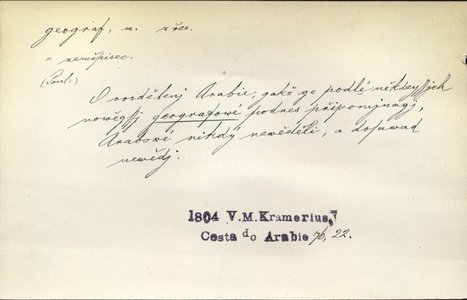 geograf, m. z řec.
= zeměpisec.
(Pauli.)
O rozdělenj Arabie, gaké ge podlé někderých
nowěgssj geografowé podnes připomjnagj,
Arabowé nikdý newěděli, a dosawad
newědj.
1804 V.M.Kramerius,
Cesta do Arabie 76, 22.